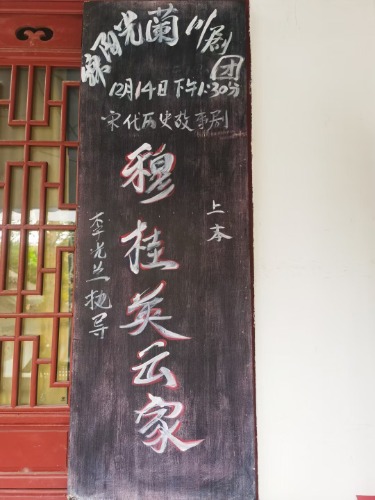 锦阳光蘭川剧团
12月14日下午1:30分
宋代历史故事剧
上本
穆桂英云家
李光兰执导